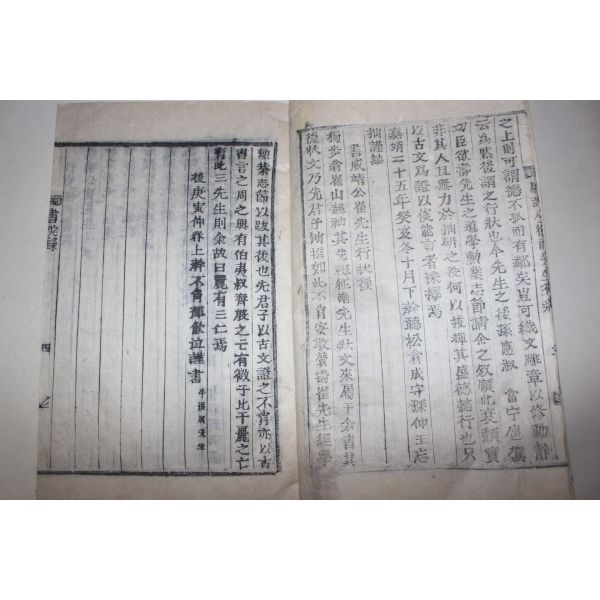 之上則可謂德不孤而有鄰矣豈可織文雕章以修動靜
云爲然後謂之行狀也今先生之後孫應叔 當守扈駕
功臣欲壽先生之道學勳業志節請余之叙顧此衰頹實
非其人且無力於抽研之後何以
以古文爲證以俟能言者採擇焉
嘉靖二十五年癸亥冬十月下澣聽松翁成守琛仲玉忘
拙謹誌
書威靖公崔先生行狀後
獨步翁崔山起神其先祖
先生狀文來屬于余書其
後狀文乃先君子
如此不肖安敢贊揚崔先生經學
勳業志節以跋其後也先君子以古文證之不肖亦以古
書言之周之興有伯夷叔齊殷之亡有微子比干麗之亡
有此三先生則余故曰麗有三仁焉
後庚寅仲春上澣不肖渾飮泣謹書
牛溪
先生
書院錄
四